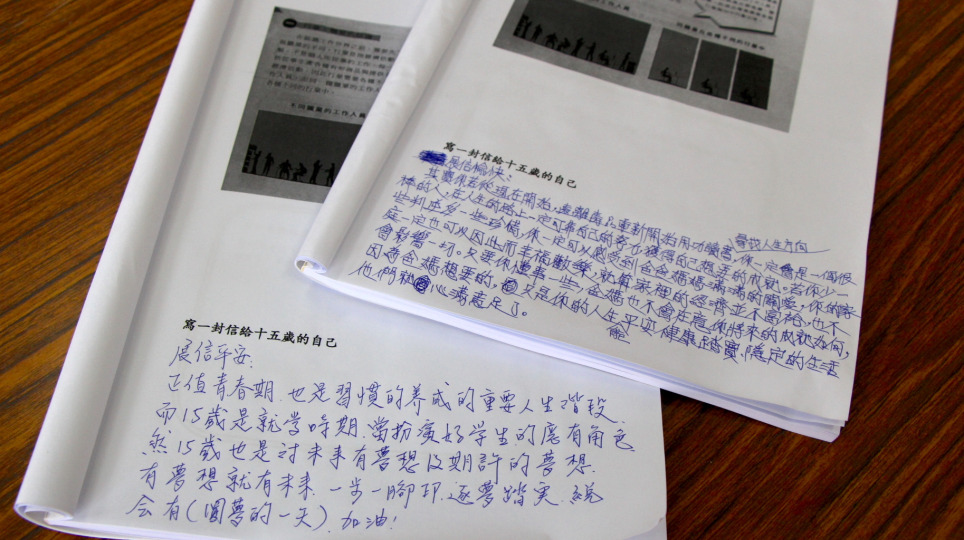 不同職業的工作人員
寫一封信給十五歲的自己
展信愉快:
其實你若從現在開始,遠離喬凡重新開始用功讀書,你一定會是一個很
尋找人生方向
棒的人,在人生的路上一定可靠自己的努力獲得自己想要的成就。若你少一
些判逆多一些珍惜,你一定可以感受到爸爸媽媽滿滿的關愛,你的家
庭一定也可以因此而幸福數倍,就算家裡的經濟並不富裕,也不
會影響一切。只要你懂事一些,爸媽也不會在意你將來的成就為何,
因為爸媽想要的,只是你的人生平安健康踏實、穩定的生活
能
他們就心滿意足了。
寫一封信給十五歲的自己
展信平安:
正值青春期,也是習慣的养成的重要人生階段,
而15歲是就學時期,當扮演好学生的應有角色,
然15歲也是对未來有夢想及期許的夢想.
有夢想就有未來,一步一腳印,逐夢踏実,總
会有(圓夢的一天),加油!